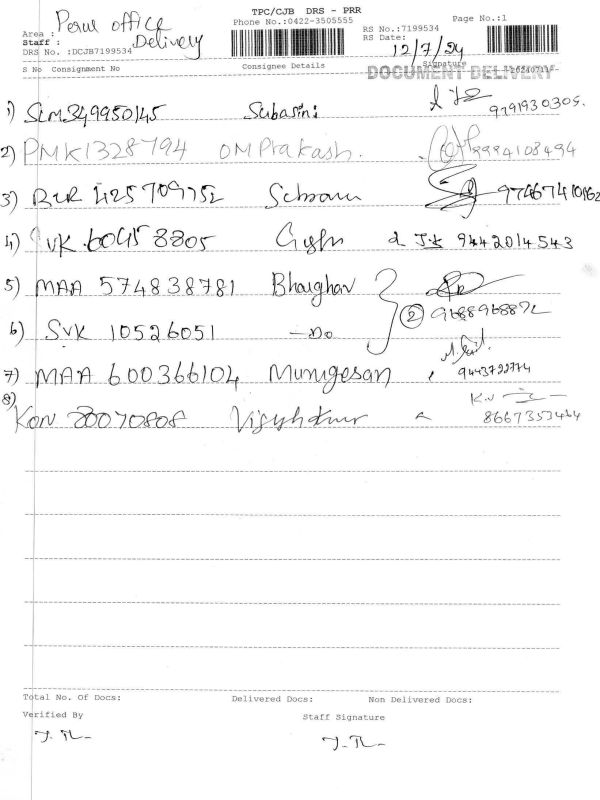 TPC/CJB DRS - PRR
Phone No.:0422-3505555
Page No.:1
Area : Perur office
Staff : Delivery
DRS No. :DCJB7199534
RS No.:7199534
RS Date: 12/7/24
S No Consignment No Consignee Details Signature
DOCUMENT DELIVERY
1) SLM349950145 Subasini 9791930305.
2) PMK1328794 OM Prakash. 9994108494
3) 425709752 97467410162
4) SVK 60458805 9442014543
5) MAA 574838781 Bhaighav
6) SVK 10526051 -Do (2) 9688968872
7) MAA 600366104 Murugesan 9443722774
8) KON 80070808 8667353464
Total No. Of Docs: Delivered Docs: Non Delivered Docs:
Verified By Staff Signature